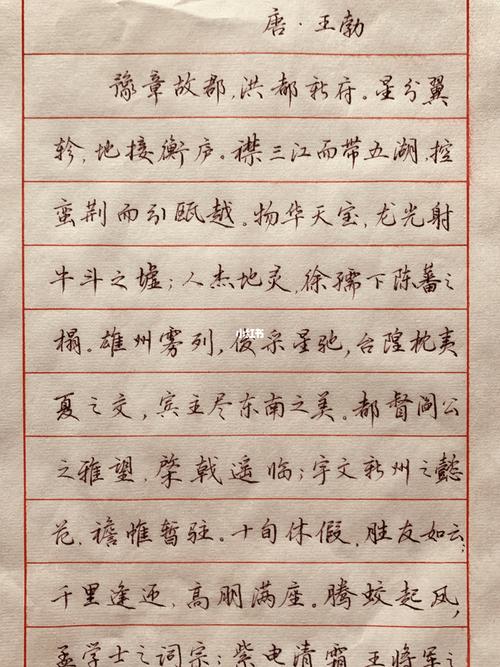 唐·王勃
豫章故郡,洪都新府。星分翼
轸,地接衡庐。襟三江而带五湖,控
蛮荆而引瓯越。物华天宝,龙光射
牛斗之墟;人杰地灵,徐孺下陈蕃之
榻。雄州雾列,俊采星驰,台隍枕夷
夏之交,宾主尽东南之美。都督阎公
之雅望,棨戟遥临;宇文新州之懿
范,襜帷暂驻。十旬休假,胜友如云;
千里逢迎,高朋满座。腾蛟起凤,
孟学士之词宗;紫电清霜,王将军之
小红书